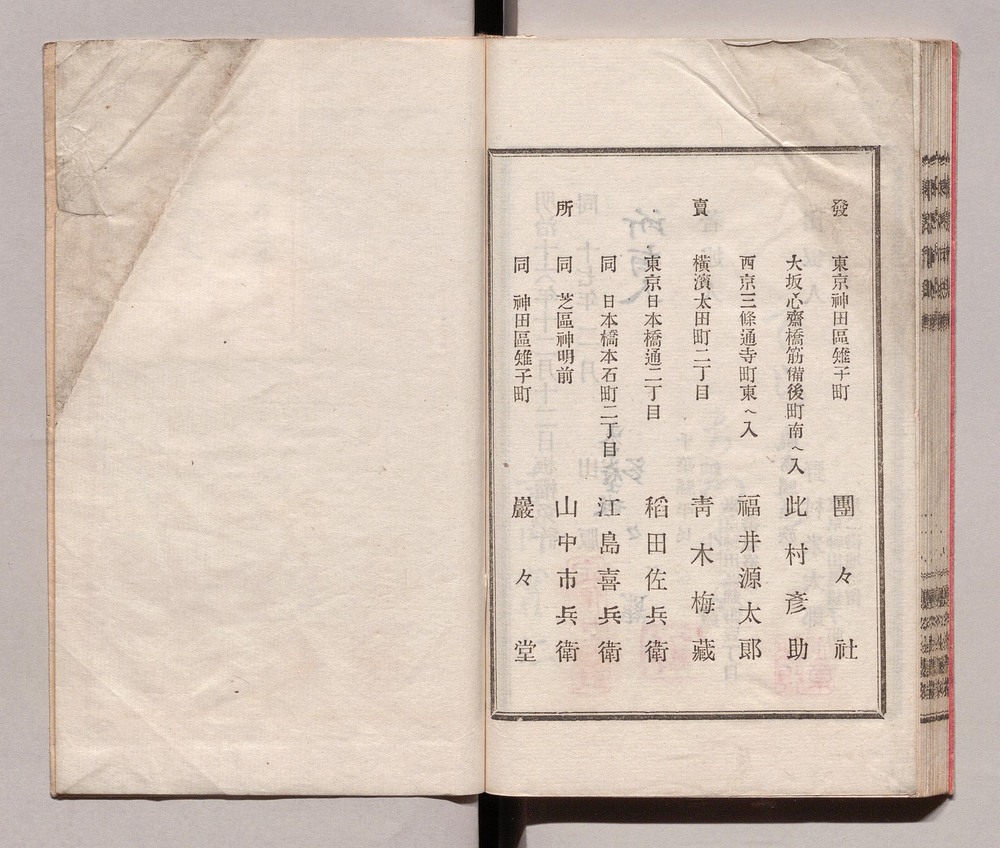 發　東京神田區雉子町　團々社
大坂心齋橋筋備後町南へ入　此村彥助
西京三條通寺町東へ入　福井源太郎
賣　橫濱太田町二丁目　靑木梅藏
東京日本橋通二丁目　稻田佐兵衛
同　日本橋本石町二丁目　江島喜兵衛
所　同　芝區神明前　山中市兵衛
同　神田區雉子町　巖々堂